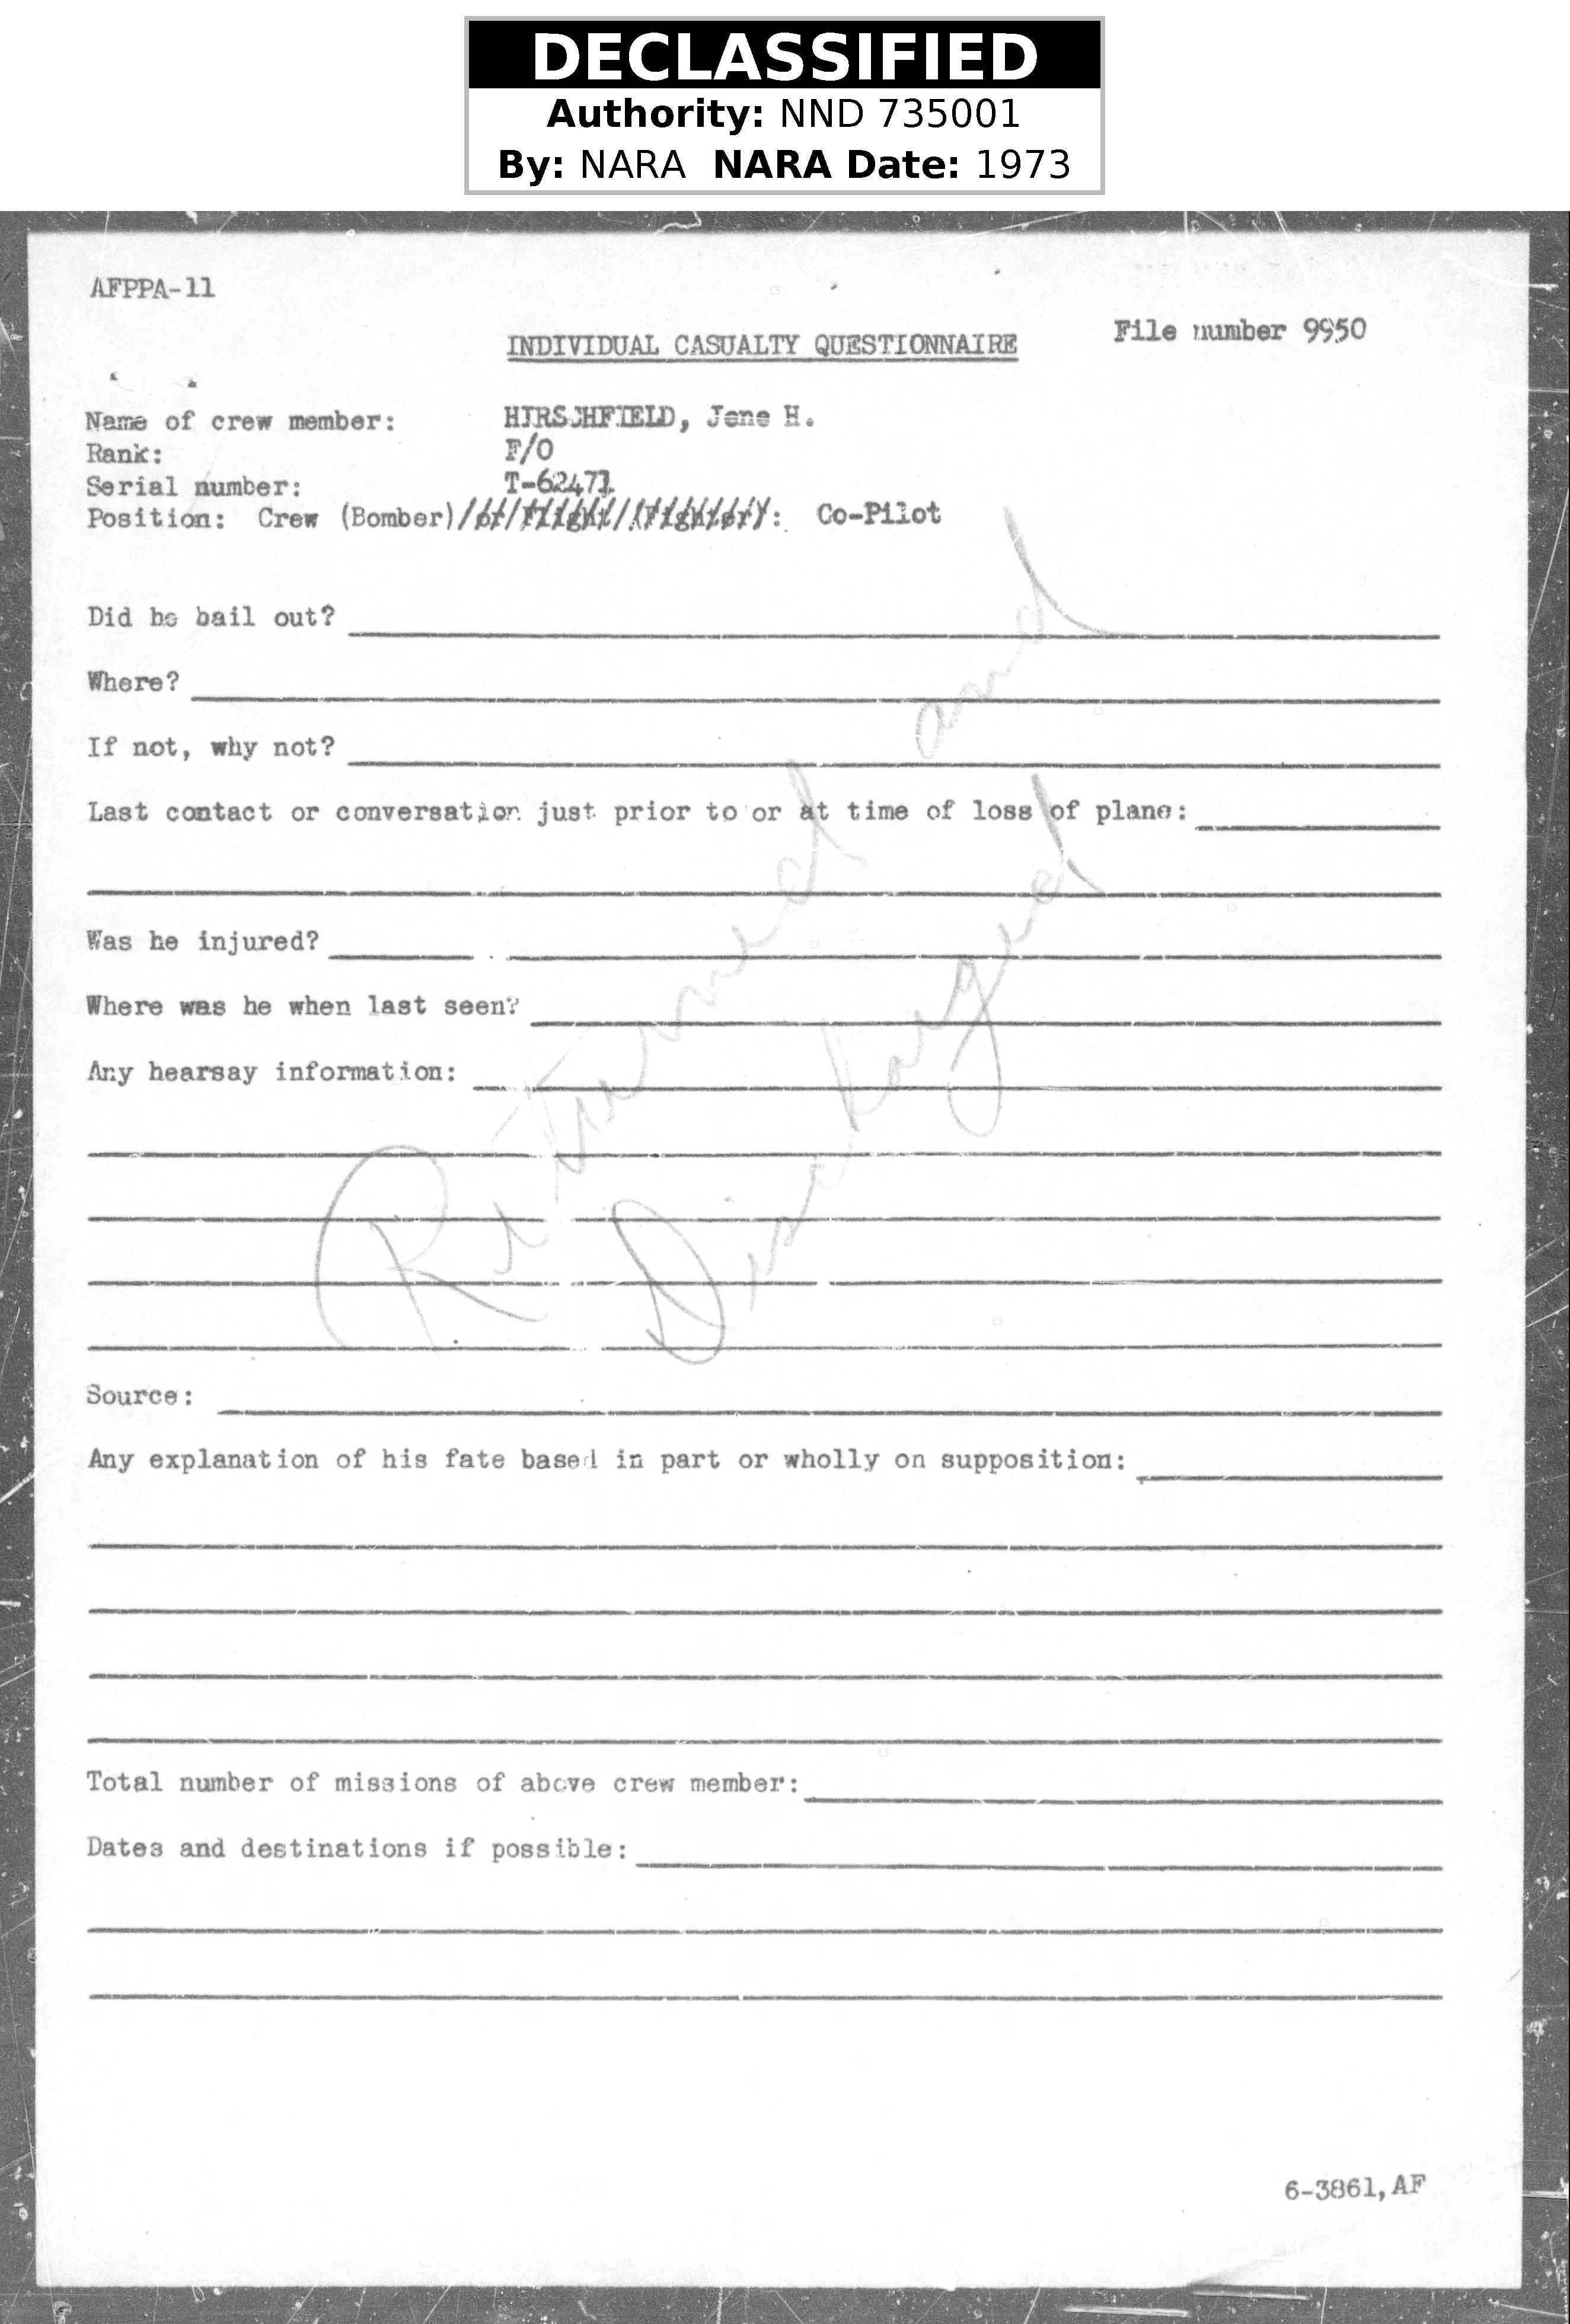 DECLASSIFIED
Authority: NND 735001
By: NARA NARA Date: 1973
AFPPA-11
File number 9950
INDIVIDUAL CASUALTY QUESTIONNAIRE
Name of crew member: HIRSCHFIELD, Jene H.
Rank: F/O
Serial number: T-62471
Position: Crew (Bomber)/or/Flight/(Fighter): Co-Pilot
Did he bail out?
Where?
If not, why not?
Last contact or conversation just prior to or at time of loss of plane:
Was he injured?
Where was he when last seen?
Any hearsay information:
Returned and
Discharged
Source:
Any explanation of his fate based in part or wholly on supposition:
Total number of missions of above crew member:
Dates and destinations if possible:
6-3861,AF